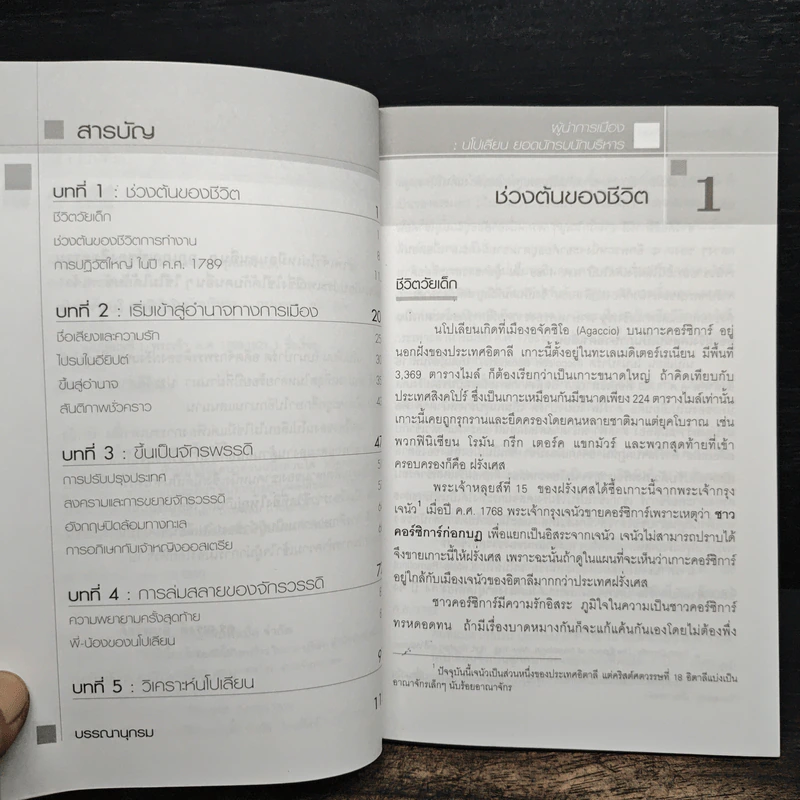 สารบัญ
บทที่ 1 : ช่วงต้นของชีวิต 1
ชีวิตวัยเด็ก
ช่วงต้นของชีวิตการทำงาน
การปฏิวัติใหญ่ ในปี ค.ศ. 1789
บทที่ 2 : เริ่มเข้าสู่อำนาจทางการเมือง 20
ชื่อเสียงและความรัก
ไปรบในอียิปต์
ขึ้นสู่อำนาจ
สันติภาพชั่วคราว
บทที่ 3 : ขึ้นเป็นจักรพรรดิ
การปรับปรุงประเทศ
สงครามและการขยายจักรวรรดิ
อังกฤษปิดล้อมทางทะเล
การอภิเษกกับเจ้าหญิงออสเตรีย
บทที่ 4 : การล่มสลายของจักรวรรดิ
ความพยายามครั้งสุดท้าย
พี่-น้องของนโปเลียน
บทที่ 5 : วิเคราะห์นโปเลียน
บรรณานุกรม
ผู้นำการเมือง
: นโปเลียน ยอดนักรบนักบริหาร
ช่วงต้นของชีวิต 1
ชีวิตวัยเด็ก
นโปเลียนเกิดที่เมืองอจัคซิโอ (Agaccio) บนเกาะคอร์ซิการ์ อยู่
นอกฝั่งของประเทศอิตาลี เกาะนี้ตั้งอยู่ในทะเลเมดิเตอร์เรเนียน มีพื้นที่
3,369 ตารางไมล์ ก็ต้องเรียกว่าเป็นเกาะขนาดใหญ่ ถ้าคิดเทียบกับ
ประเทศสิงคโปร์ ซึ่งเป็นเกาะเหมือนกันมีขนาดเพียง 224 ตารางไมล์เท่านั้น
เกาะนี้เคยถูกรุกรานและยึดครองโดยคนหลายชาติมาแต่ยุคโบราณ เช่น
พวกฟินิเชียน โรมัน กรีก เตอร์ค แขกมัวร์ และพวกสุดท้ายที่เข้า
ครอบครองก็คือ ฝรั่งเศส
พระเจ้าหลุยส์ที่ 15 ของฝรั่งเศสได้ซื้อเกาะนี้จากพระเจ้ากรุง
เจนัว¹ เมื่อปี ค.ศ. 1768 พระเจ้ากรุงเจนัวขายคอร์ซิการ์เพราะเหตุว่า ชาว
คอร์ซิการ์ก่อกบฏ เพื่อแยกเป็นอิสระจากเจนัว เจนัวไม่สามารถปราบได้
จึงขายเกาะนี้ให้ฝรั่งเศส เพราะฉะนั้นถ้าดูในแผนที่จะเห็นว่าเกาะคอร์ซิการ์
อยู่ใกล้กับเมืองเจนัวของอิตาลีมากกว่าประเทศฝรั่งเศส
ชาวคอร์ซิการ์มีความรักอิสระ ภูมิใจในความเป็นชาวคอร์ซิการ์
ทรหดอดทน ถ้ามีเรื่องบาดหมางกันก็จะแก้แค้นกันเองโดยไม่ต้องพึ่ง
¹ ปัจจุบันนี้เจนัวเป็นส่วนหนึ่งของประเทศอิตาลี แต่คริสต์ศตวรรษที่ 18 อิตาลีแบ่งเป็น
อาณาจักรเล็กๆ นับร้อยอาณาจักร